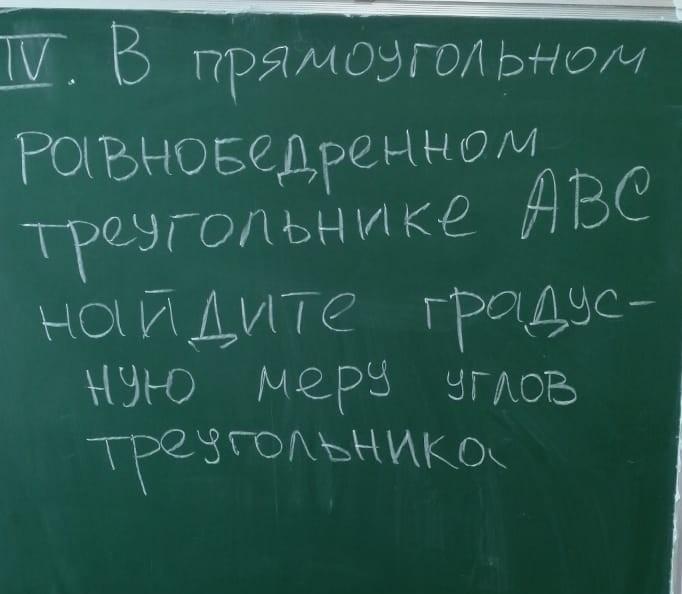 IV. В прямоугольном
равнобедренном
треугольнике ABC
найдите градус-
ную меру углов
треугольника